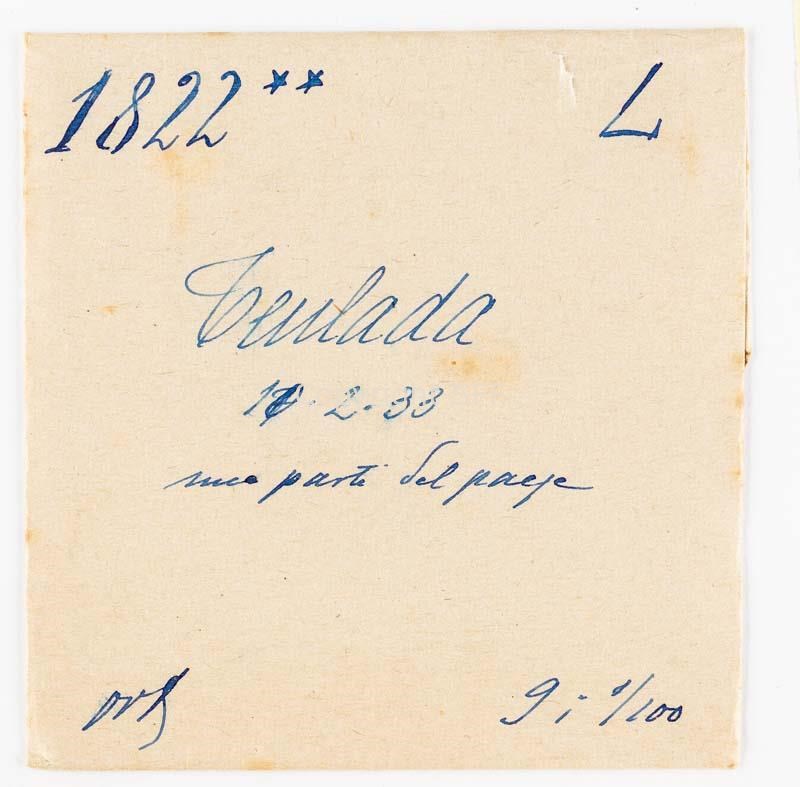 1822 ** L
Teulada
2. 33
una parte del paese
9 i 1/100